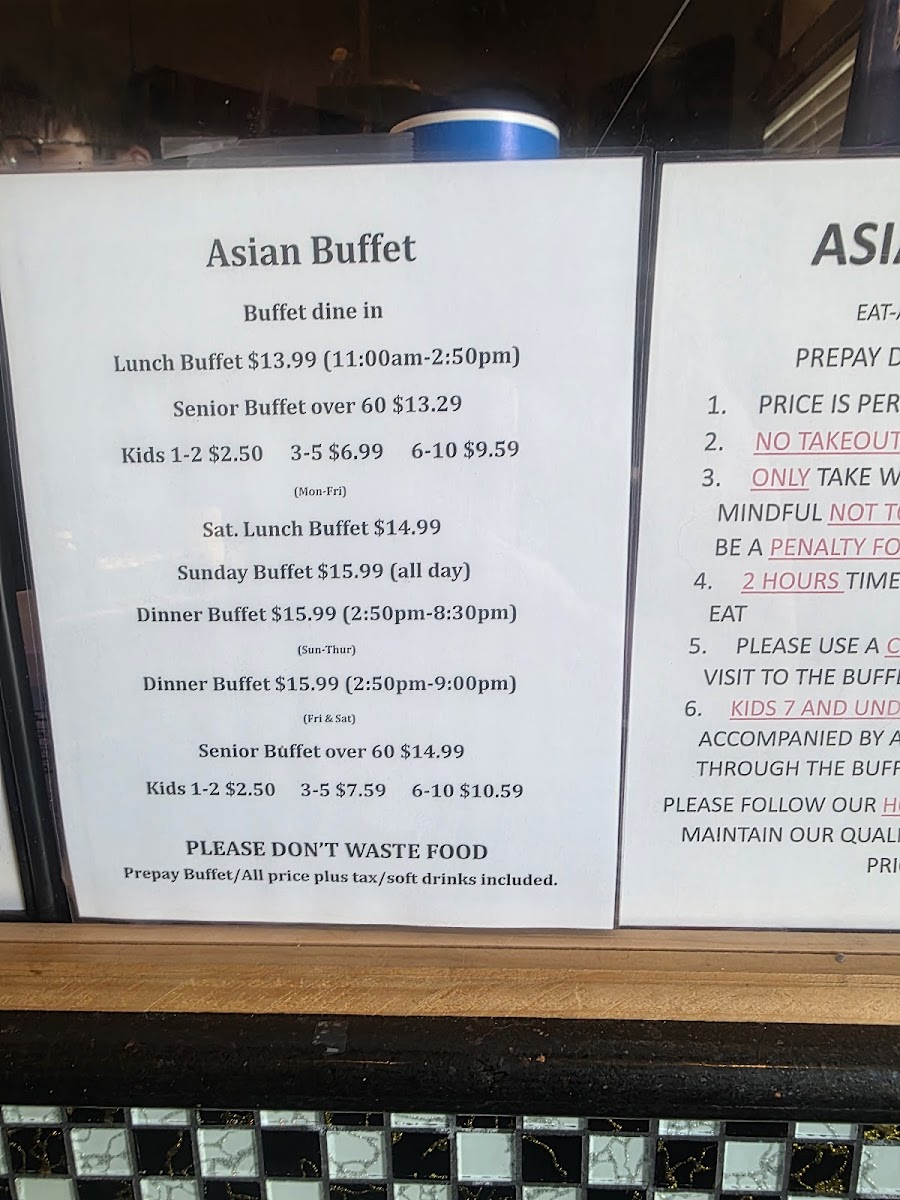 Asian Buffet
Buffet dine in
Lunch Buffet $13.99 (11:00am-2:50pm)
Senior Buffet over 60 $13.29
Kids 1-2 $2.50 3-5 $6.99 6-10 $9.59
(Mon-Fri)
Sat. Lunch Buffet $14.99
Sunday Buffet $15.99 (all day)
Dinner Buffet $15.99 (2:50pm-8:30pm)
(Sun-Thur)
Dinner Buffet $15.99 (2:50pm-9:00pm)
(Fri & Sat)
Senior Buffet over 60 $14.99
Kids 1-2 $2.50 3-5 $7.59 6-10 $10.59
PLEASE DON'T WASTE FOOD
Prepay Buffet/All price plus tax/soft drinks included.
EAT-
PREPAY
1. PRICE IS PER
2. NO TAKEOUT
3. ONLY TAKE
MINDFUL NOT
BE A PENALTY
4. 2 HOURS TIME
EAT
5. PLEASE USE A
VISIT TO THE
6. KIDS 7 AND
ACCOMPANIED BY
THROUGH THE
PLEASE FOLLOW OUR
MAINTAIN OUR